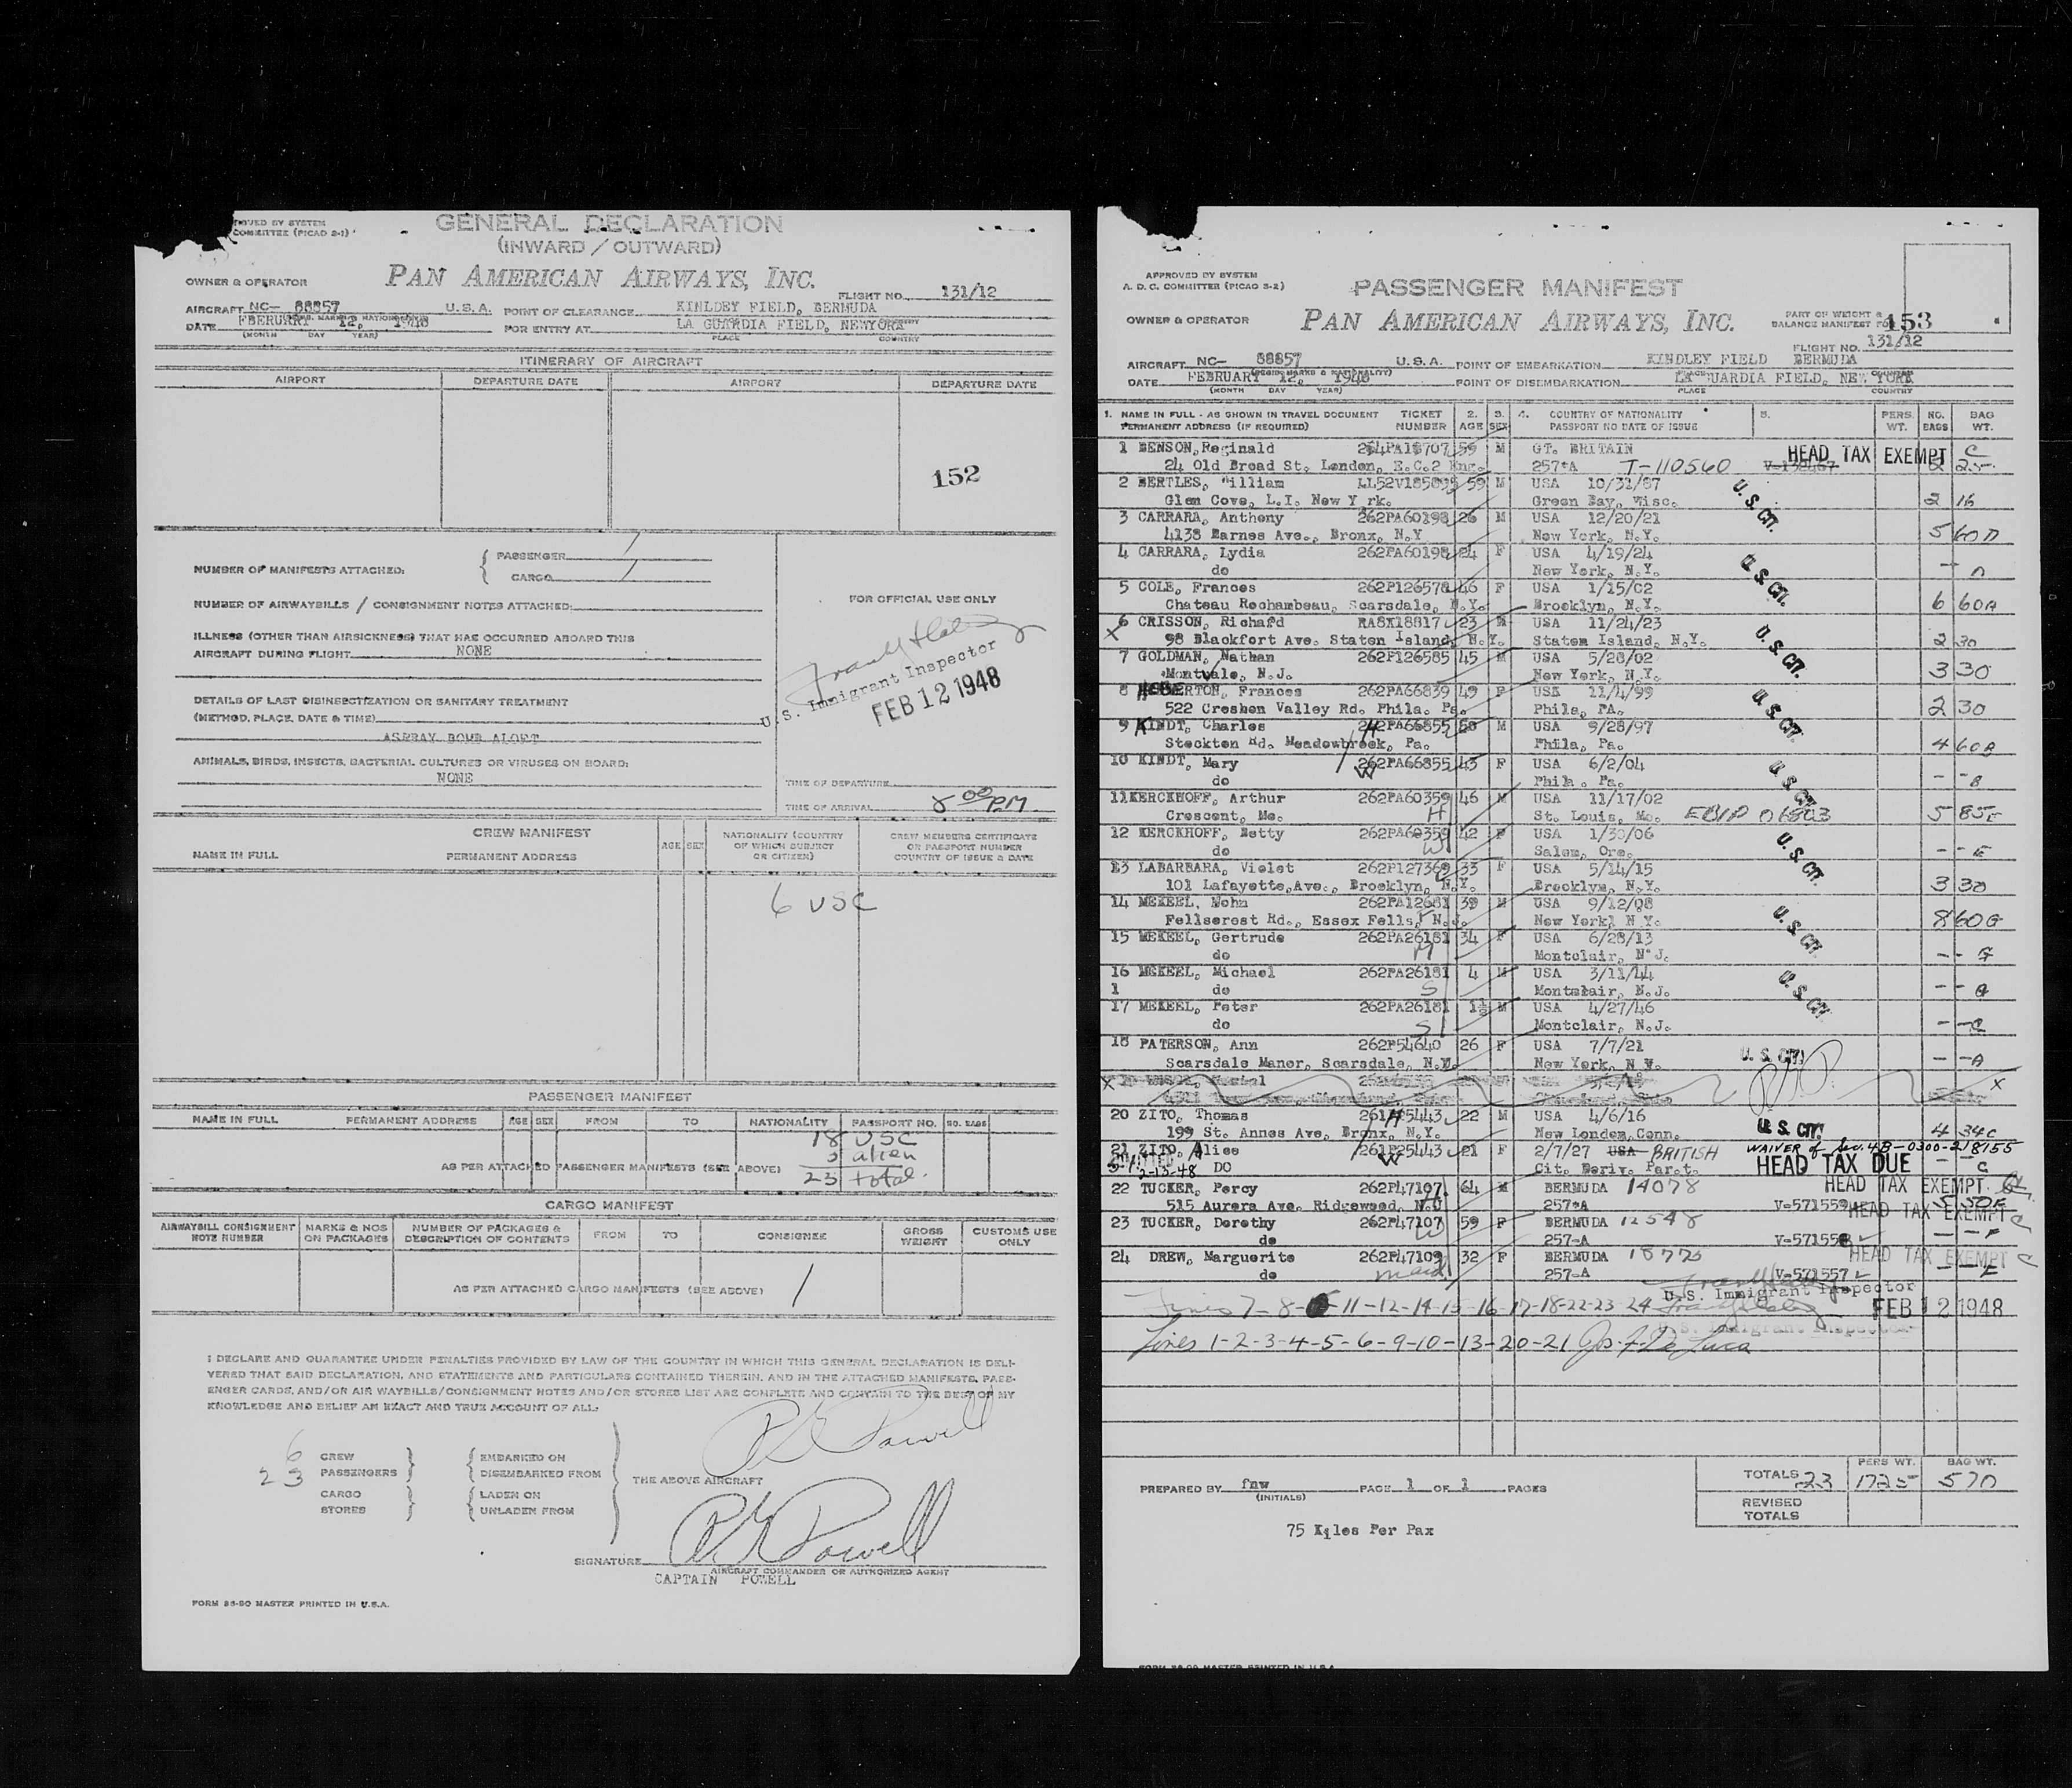 OVED BY SYSTEM
COMMITTEE (PICAO S-1)
GENERAL DECLARATION
(INWARD / OUTWARD)
OWNER & OPERATOR PAN AMERICAN AIRWAYS, INC. FLIGHT NO. 131/12
AIRCRAFT NC- 88857 U.S.A. POINT OF CLEARANCE KINLDEY FIELD, BERMUDA
DATE FBERURRY 12, 1948 FOR ENTRY AT LA GUARDIA FIELD, NEWYORK
(MONTH DAY YEAR) PLACE COUNTRY
ITINERARY OF AIRCRAFT
AIRPORT DEPARTURE DATE AIRPORT DEPARTURE DATE
152
NUMBER OF MANIFESTS ATTACHED: PASSENGER 1
CARGO 1
NUMBER OF AIRWAYBILLS / CONSIGNMENT NOTES ATTACHED:
FOR OFFICIAL USE ONLY
ILLNESS (OTHER THAN AIRSICKNESS) THAT HAS OCCURRED ABOARD THIS
AIRCRAFT DURING FLIGHT NONE
U.S. Immigrant Inspector
FEB 12 1948
DETAILS OF LAST DISINSECTIZATION OR SANITARY TREATMENT
(METHOD, PLACE, DATE & TIME)
ASPRAY BOMB ALOFT
ANIMALS, BIRDS, INSECTS, BACTERIAL CULTURES OR VIRUSES ON BOARD:
NONE
TIME OF DEPARTURE
TIME OF ARRIVAL 5 00 PM
CREW MANIFEST
NAME IN FULL PERMANENT ADDRESS AGE SEX NATIONALITY (COUNTRY OF WHICH SUBJECT OR CITIZEN) CREW MEMBERS CERTIFICATE OR PASSPORT NUMBER COUNTRY OF ISSUE & DATE
6 USC
PASSENGER MANIFEST
NAME IN FULL PERMANENT ADDRESS AGE SEX FROM TO NATIONALITY PASSPORT NO. NO. BAGS
18 USC
5 alien
AS PER ATTACHED PASSENGER MANIFESTS (SEE ABOVE)
23 total
CARGO MANIFEST
AIRWAYBILL CONSIGNMENT NOTE NUMBER MARKS & NOS ON PACKAGES NUMBER OF PACKAGES & DESCRIPTION OF CONTENTS FROM TO CONSIGNEE GROSS WEIGHT CUSTOMS USE ONLY
AS PER ATTACHED CARGO MANIFESTS (SEE ABOVE) 1
I DECLARE AND GUARANTEE UNDER PENALTIES PROVIDED BY LAW OF THE COUNTRY IN WHICH THIS GENERAL DECLARATION IS DELI-
VERED THAT SAID DECLARATION, AND STATEMENTS AND PARTICULARS CONTAINED THEREIN, AND IN THE ATTACHED MANIFESTS, PASS-
ENGER CARDS, AND/OR AIR WAYBILLS/CONSIGNMENT NOTES AND/OR STORES LIST ARE COMPLETE AND CONTAIN TO THE BEST OF MY
KNOWLEDGE AND BELIEF AN EXACT AND TRUE ACCOUNT OF ALL:
6 CREW EMBARKED ON
23 PASSENGERS DISEMBARKED FROM THE ABOVE AIRCRAFT
CARGO LADEN ON
STORES UNLADEN FROM
SIGNATURE
AIRCRAFT COMMANDER OR AUTHORIZED AGENT
CAPTAIN POWELL
FORM 85-90 MASTER PRINTED IN U.S.A.
APPROVED BY SYSTEM
A. D. C. COMMITTEE (PICAO S-2)
PASSENGER MANIFEST
OWNER & OPERATOR PAN AMERICAN AIRWAYS, INC.
PART OF WEIGHT &
BALANCE MANIFEST FO 153
FLIGHT NO. 131/12
AIRCRAFT NC- 88857 U.S.A. POINT OF EMBARKATION KINDLEY FIELD BERMUDA
DATE FEBRUARY 12, 1948 POINT OF DISEMBARKATION LA GUARDIA FIELD, NEW YORK
(MONTH DAY YEAR) PLACE COUNTRY
1. NAME IN FULL - AS SHOWN IN TRAVEL DOCUMENT TICKET 2. 3. 4. COUNTRY OF NATIONALITY 5. PERS. NO. BAG
PERMANENT ADDRESS (IF REQUIRED) NUMBER AGE SEX PASSPORT NO DATE OF ISSUE WT. BAGS WT.
1 BENSON, Reginald 264PA18707 59 M GT. BRITAIN HEAD TAX EXEMPT C
24 Old Broad St. London, E.C.2 Eng. 257*A T-110560 2 25
2 BERTLES, William LL52V185095 59 M USA 10/31/87 U.S. CIT.
Glen Cove, L.I. New Y rk. Green Bay, Wisc. 2 16
3 CARRARA, Anthony 262PA60198 26 M USA 12/20/21
4138 Barnes Ave., Bronx, N.Y New York, N.Y. 5 60D
4 CARRARA, Lydia 262PA60198 24 F USA 4/19/24 U.S. CIT.
do New York, N.Y. - D
5 COLE, Frances 262P126578 46 F USA 1/15/02
Chateau Rochambeau, Scarsdale, N.Y. Brooklyn, N.Y. 6 60A
6 CRISSON, Richard RA8X18817 23 M USA 11/24/23 U.S. CIT.
X 98 Blackfort Ave. Staten Island, N.Y. Staten Island, N.Y. 2 30
7 GOLDMAN, Nathan 262P126585 45 M USA 5/28/02
Montvale, N.J. New York, N.Y. 3 30
8 ERTON, Frances 262PA66839 49 F USA 11/4/99 U.S. CIT.
522 Creshen Valley Rd. Phila. Pa. Phila, PA. 2 30
9 KINDT, Charles H 262PA66855 50 M USA 9/28/97
Stockton Rd. Meadowbrook, Pa. Phila, Pa. 4 60B
10 KINDT, Mary 262PA66855 43 F USA 6/2/04 U.S. CIT.
do W Phila. Pa. - - B
11 KERCKHOFF, Arthur 262PA60359 46 M USA 11/17/02
Crescent, Mo. H St. Louis, Mo. 5 85E
12 KERCKHOFF, Betty 262PA60359 42 F USA 1/30/06 U.S. CIT.
do W Salem, Ore. - - E
13 LABARBARA, Violet 262P127369 33 F USA 5/14/15
101 Lafayette,Ave., Brooklyn, N.Y. Brooklyn, N.Y. 3 30
14 MEKEEL, Nohn 262PA12681 39 M USA 9/12/08 U.S. CIT.
Fellscrest Rd., Essex Fells, N.J. New York N Y. 8 60G
15 MEKEEL, Gertrude 262PA26181 34 F USA 6/28/13
do Montclair, N.J. - - G
16 MEKEEL, Michael 262PA26181 4 M USA 3/11/44 U.S. CIT.
1 do S Montclair, N.J. - - G
17 MEKEEL, Peter 262PA26181 1½ M USA 4/27/46
do S Montclair, N.J. - - G
18 PATERSON, Ann 262P54640 26 F USA 7/7/21 U.S. CIT.
Scarsdale Manor, Scarsdale, N.Y. New York, N Y. - - A
X X
20 ZITO, Thomas 261P25443 22 M USA 4/6/16
199 St. Annes Ave, Bronx, N.Y. New London,Conn. U.S. CIT. 4 34C
21 ZITO, Alice 261P25443 21 F 2/7/27 USA BRITISH WAIVER of Sec. 4B-0300-218155
2-12-48 DO W Cit. Deriv. Parent. HEAD TAX DUE - C
22 TUCKER, Percy 262P47107 64 M BERMUDA 14078 HEAD TAX EXEMPT
515 Aurora Ave. Ridgewood, N.J 257*A V-571559 5 50F
23 TUCKER, Dorothy 262P47107 59 F BERMUDA 12548 HEAD TAX EXEMPT C
de W 257-A V-571558 - - F
24 DREW, Marguerite 262P47109 32 F BERMUDA 18775 HEAD TAX EXEMPT C
de maid 257-A V-571557 - - E
U.S. Immigrant Inspector
Lines 7-8- -11-12-14-15-16-17-18-22-23-24 FEB 12 1948
Lines 1-2-3-4-5-6-9-10-13-20-21 Jos. F. De Luca
PREPARED BY fnw PAGE 1 OF 1 PAGES
(INITIALS)
PERS WT. BAG WT.
TOTALS 23 1725 570
REVISED
TOTALS
75 Kiles Per Pax
FORM 85-90 MASTER PRINTED IN U.S.A